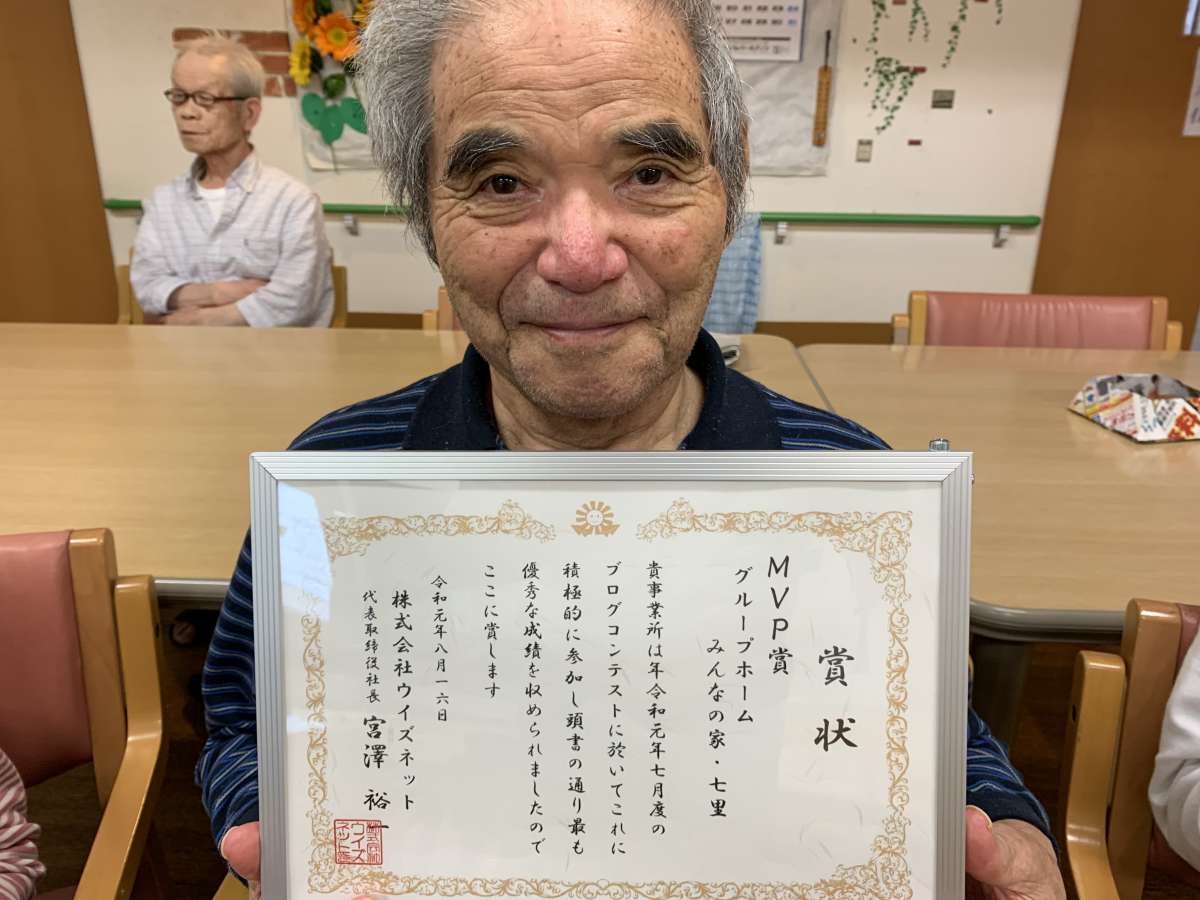 賞状
MVP賞
グループホーム
みんなの家・七里
貴事業所は年令和元年七月度の
ブログコンテストに於いてこれに
積極的に参加し頭書の通り最も
優秀な成績を収められましたので
ここに賞します
令和元年八月一六日
株式会社ウイズネット
代表取締役社長 宮澤 裕一